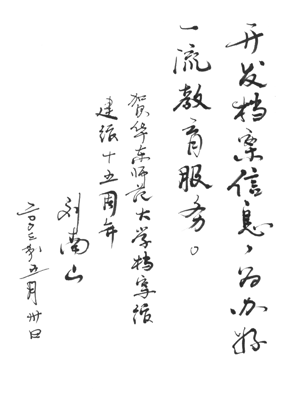 开发档案信息，为办好
一流教育服务。
贺华东师范大学档案馆
建馆十五周年
刘南山
二〇〇三年五月卅日